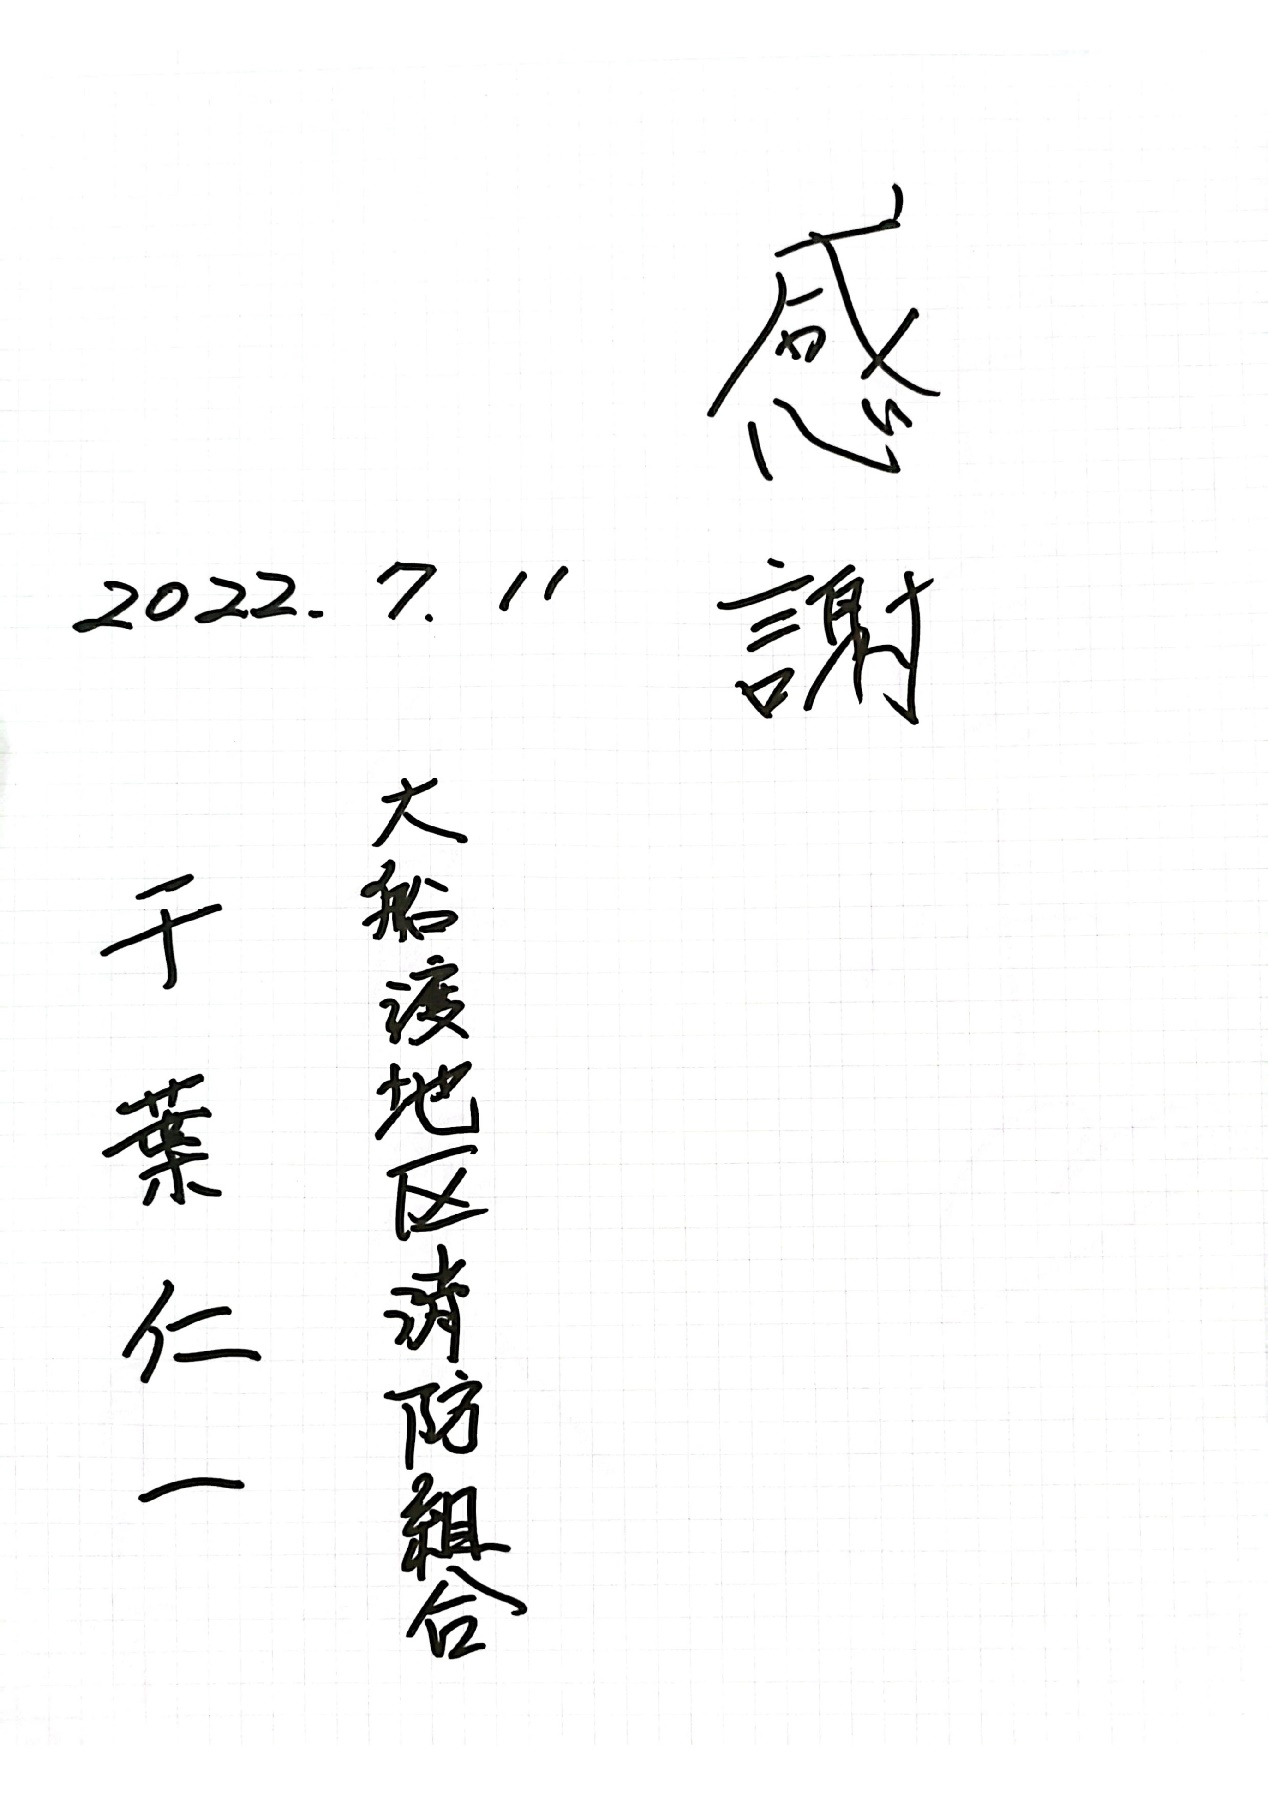 感謝
2022.7.11
大船渡地区消防組合
千葉仁一